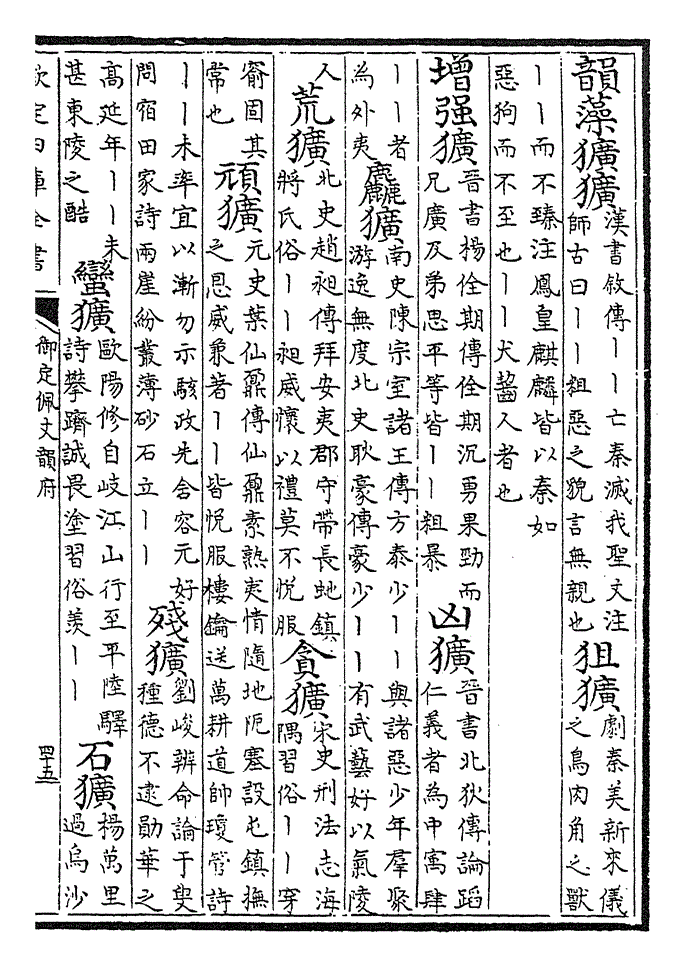 韻藻獷獷漢書敘傳丨丨亡秦滅我聖文注師古曰丨丨粗惡之貌言無親也狙獷劇秦美新來儀之鳥肉角之獸
丨丨而不臻注鳳皇麒麟皆以秦如惡狗而不至也丨丨犬齧人者也
增强獷晉書楊佺期傳佺期沉勇果勁而兄廣及弟思平等皆丨丨粗暴凶獷晉書北狄傳論蹈仁義者為中寓肆
丨丨者為外夷麤獷南史陳宗室諸王傳方泰少丨丨與諸惡少年羣聚游逸無度北史耿豪傳豪少丨丨有武藝好以氣陵
人荒獷北史趙昶傳拜安夷郡守帶長虵鎮將氏俗丨丨昶威懷以禮莫不悅服貪獷宋史刑法志海隅習俗丨丨穿
窬固其常也頑獷元史葉仙鼐傳仙鼐素熟夷情隨地阨塞設屯鎮撫之恩威象著丨丨皆悅服樓鑰送萬耕道帥瓊管詩
丨丨未率宜以漸勿示駭政先含容元好問宿田家詩兩崖紛叢薄砂石立丨丨殘獷劉峻辨命論于叟種德不逮勛華之
高延年丨丨未甚東陵之酷蠻獷歐陽修自岐江山行至平陸驛詩攀躋誠畏塗習俗羨丨丨石獷楊萬里過烏沙
欽定四庫全書
御定佩文韻府
四十五